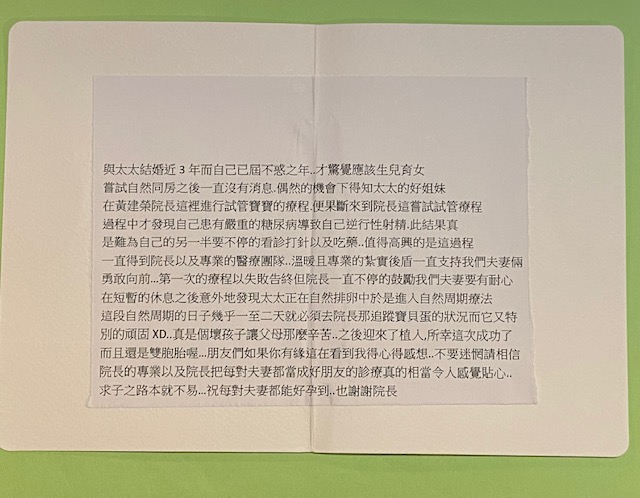 與太太結婚近 3 年而自己已屆不惑之年..才驚覺應該生兒育女
嘗試自然同房之後一直沒有消息.偶然的機會下得知太太的好姐妹
在黃建榮院長這裡進行試管寶寶的療程.便果斷來到院長這嘗試試管療程
過程中才發現自己患有嚴重的糖尿病導致自己逆行性射精.此結果真
是難為自己的另一半要不停的看診打針以及吃藥..值得高興的是這過程
一直得到院長以及專業的醫療團隊..溫暖且專業的紮實後盾一直支持我們夫妻倆
勇敢向前...第一次的療程以失敗告終但院長一直不停的鼓勵我們夫妻要有耐心
在短暫的休息之後意外地發現太太正在自然排卵中於是進入自然周期療法
這段自然周期的日子幾乎一至二天就必須去院長那追蹤寶貝蛋的狀況而它又特
別的頑固 XD..真是個壞孩子讓父母那麼辛苦..之後迎來了植入,所幸這次成功了
而且還是雙胞胎喔...朋友們如果你有緣這在看到我得心得感想..不要迷惘請相信
院長的專業以及院長把每對夫妻都當成好朋友的診療真的相當令人感覺貼心..
求子之路本就不易...祝每對夫妻都能好孕到..也謝謝院長